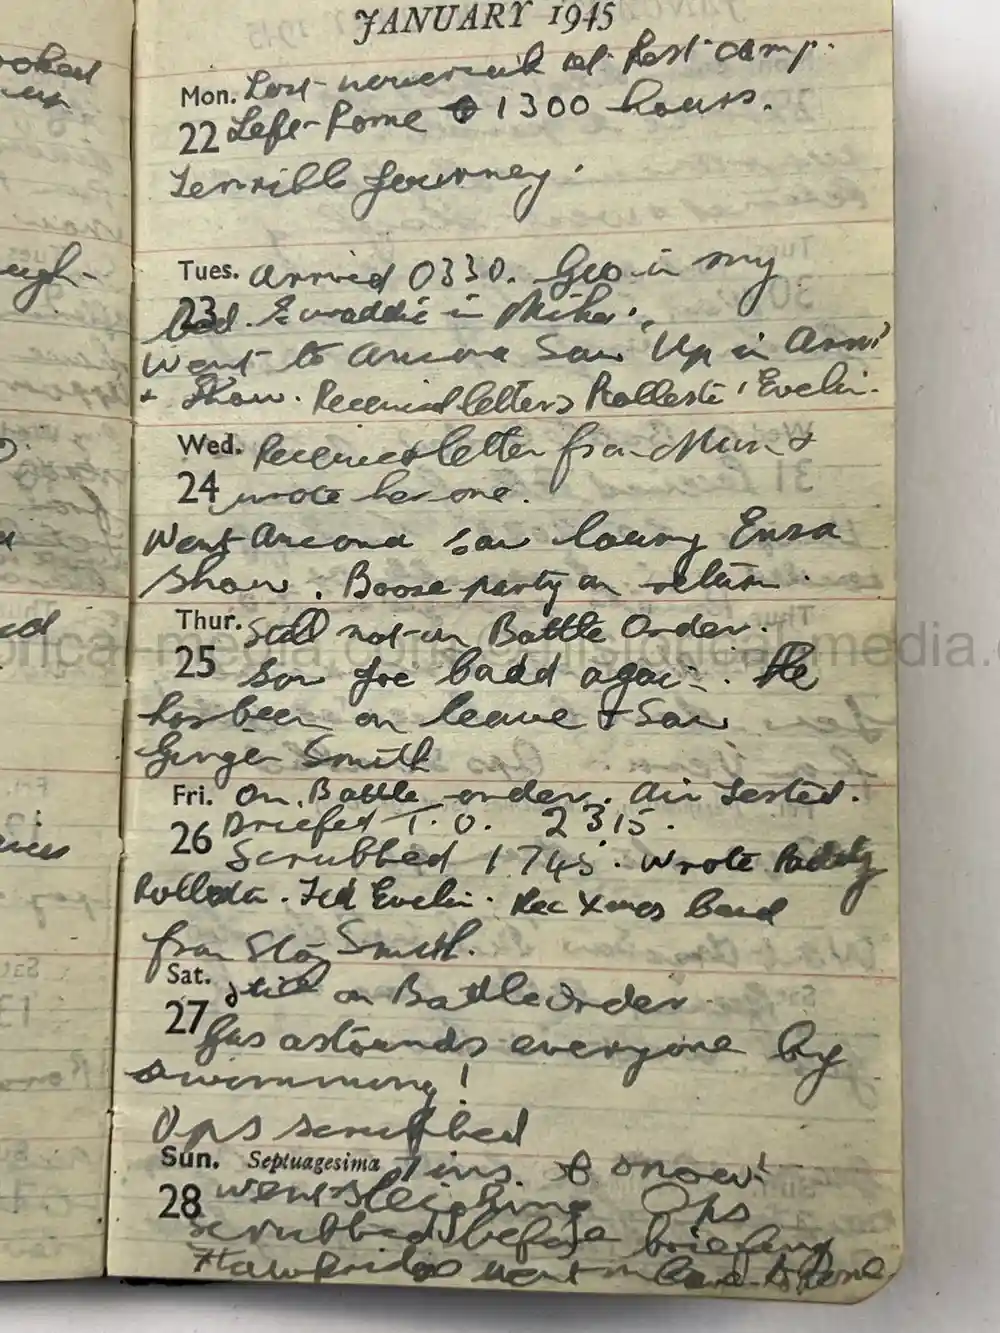 JANUARY 1945
Mon. Lost at Rest camp.
22 Left Rome 1300 hours.
Terrible journey.
Tues. Arrived 0330. Geo in my
23 bed. in Mike's.
Went to Ancona Saw Up in Arms
+ Show. Received letters Evelin.
Wed. Received letter from Mum +
24 wrote her one.
Went Ancona saw lousy Ensa
Show. Boose party on return.
Thur. Still not on Battle Order.
25 Saw Joe again. He
has been on leave + saw
Ginger Smith
Fri. On Battle order. Air Tested.
26 Briefed T.O. 2315.
Scrubbed 1745. Wrote Paddy
Ted Evelin. Rec Xmas Card
from Smith.
Sat. Still on Battle Order
27 Gus astounds everyone by
swimming!
Ops scrubbed
Sun. Septuagesima of snow!
28 went sleighing Ops
scrubbed before briefing
went on leave to Rome.
historical-media.com